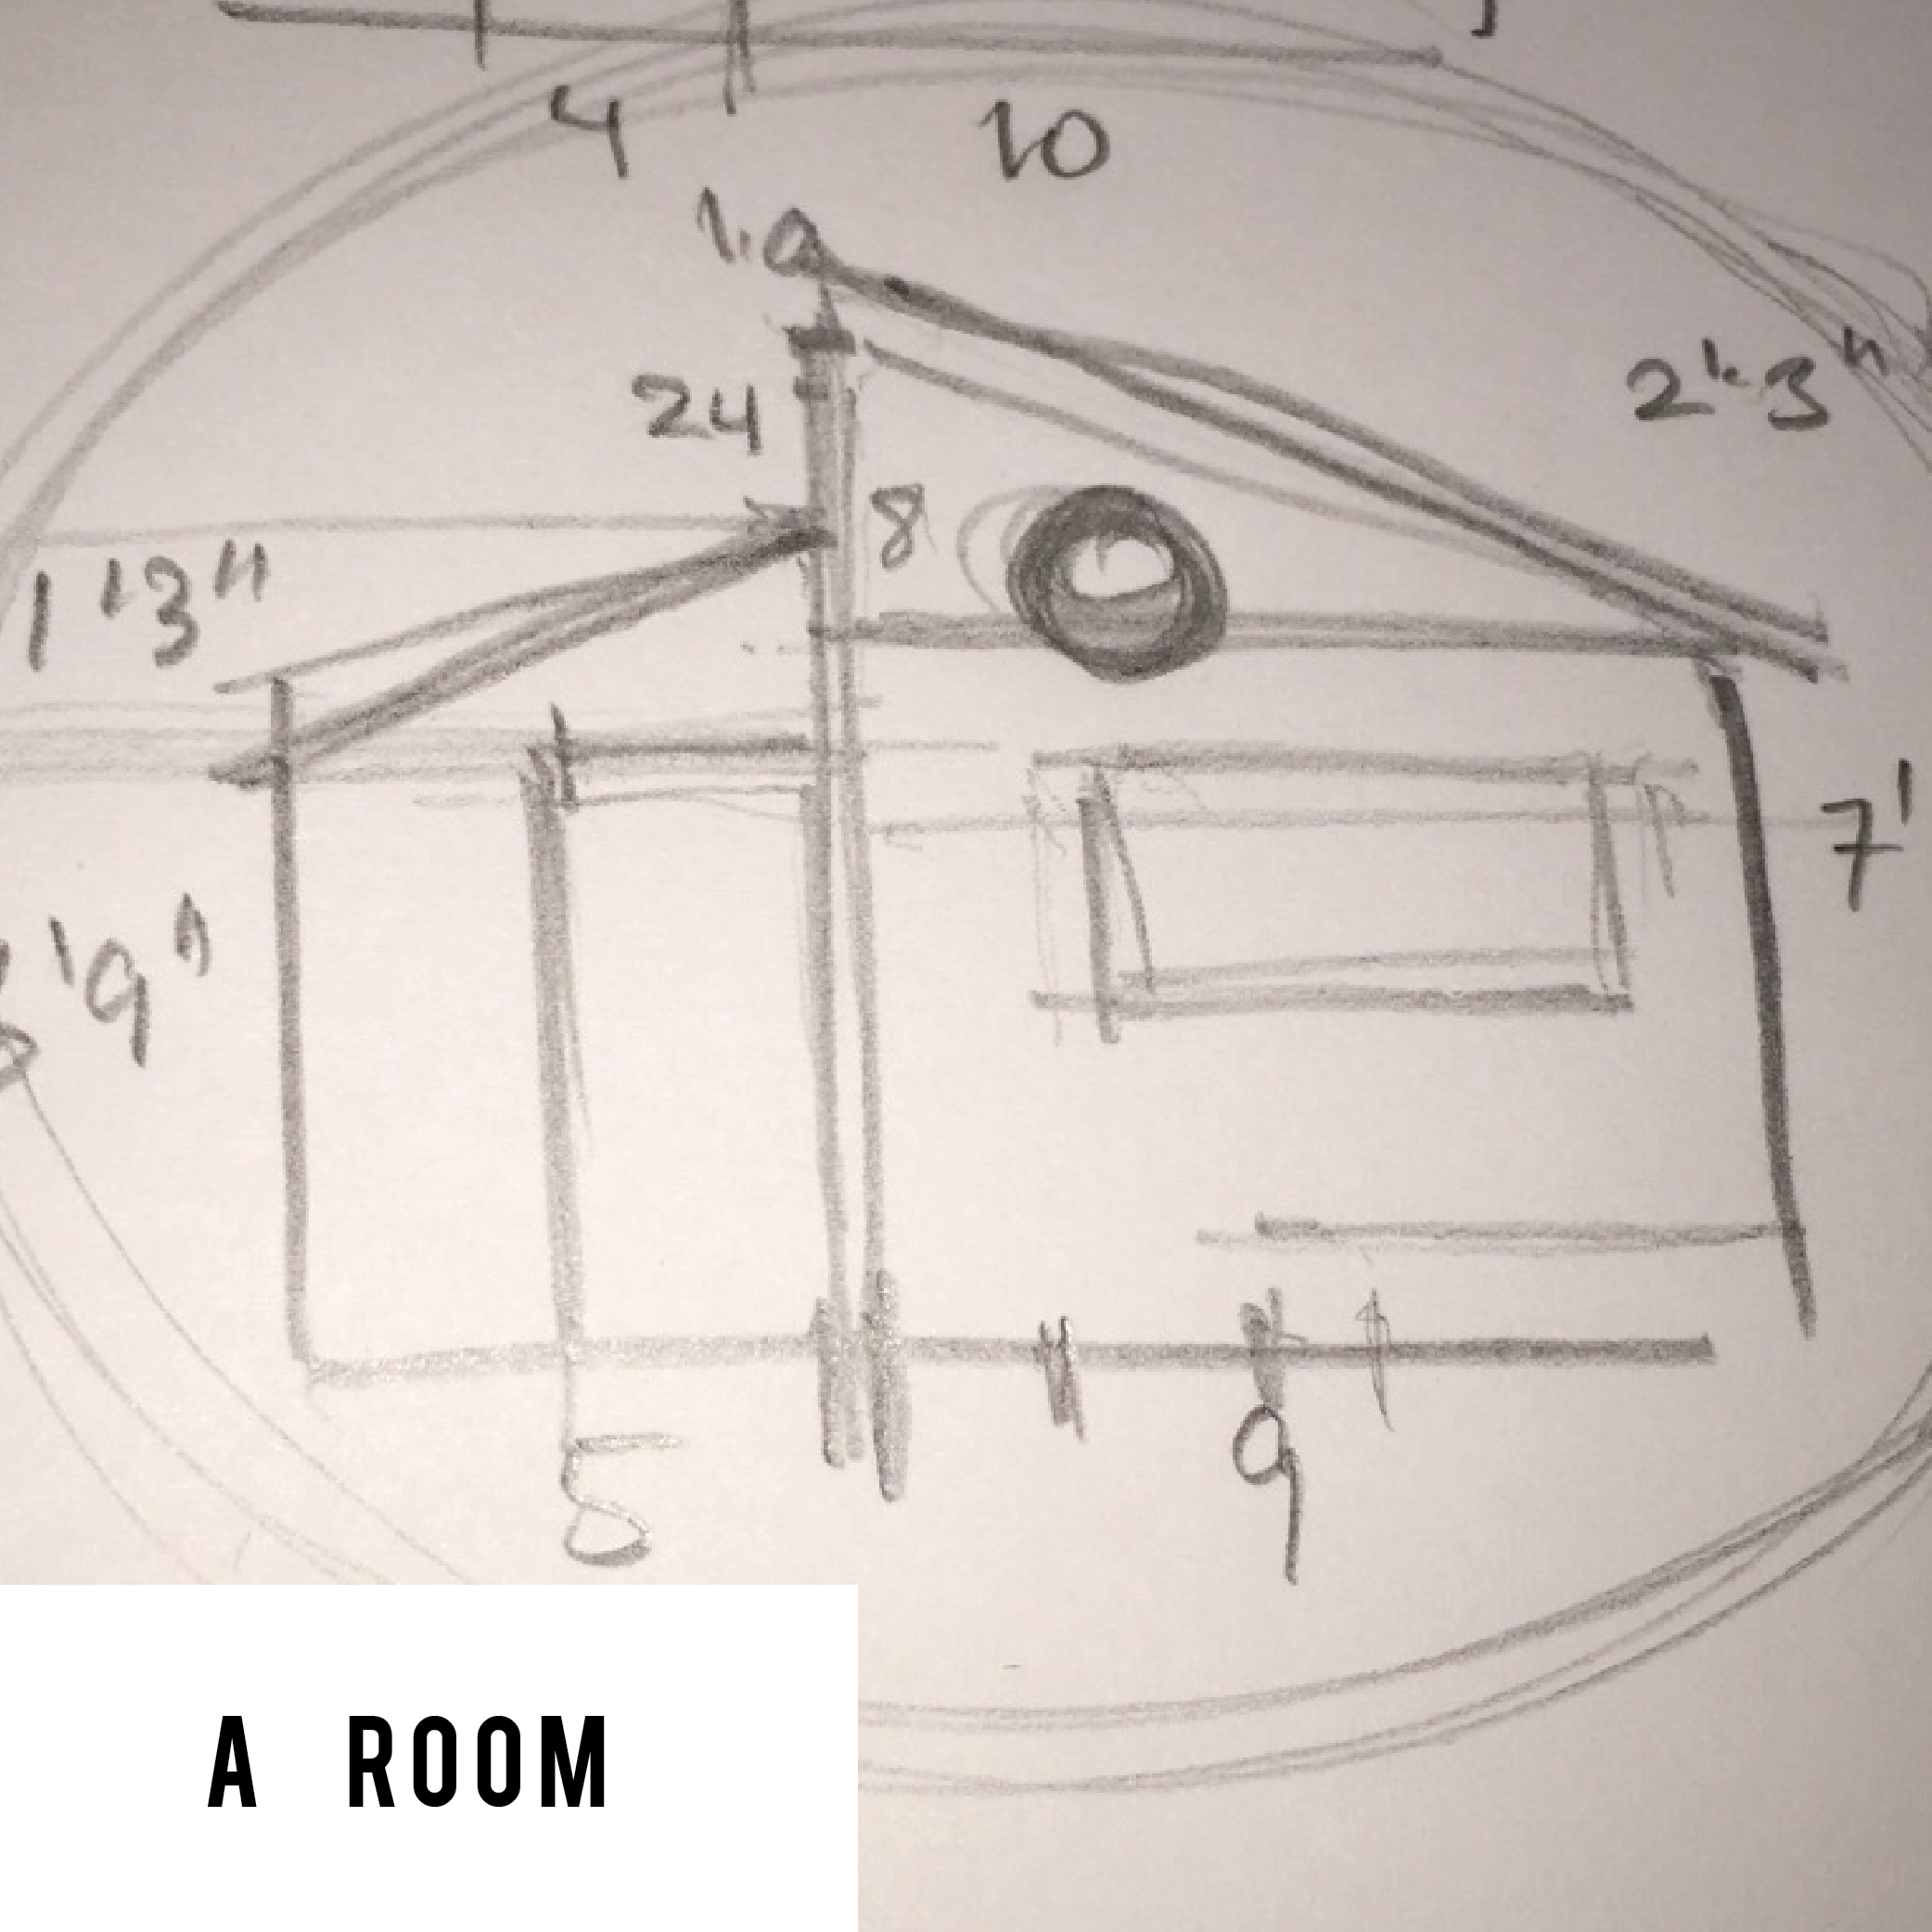 4 10
24
2'3"
8
1'3"
7'
'9"
5
9
A ROOM